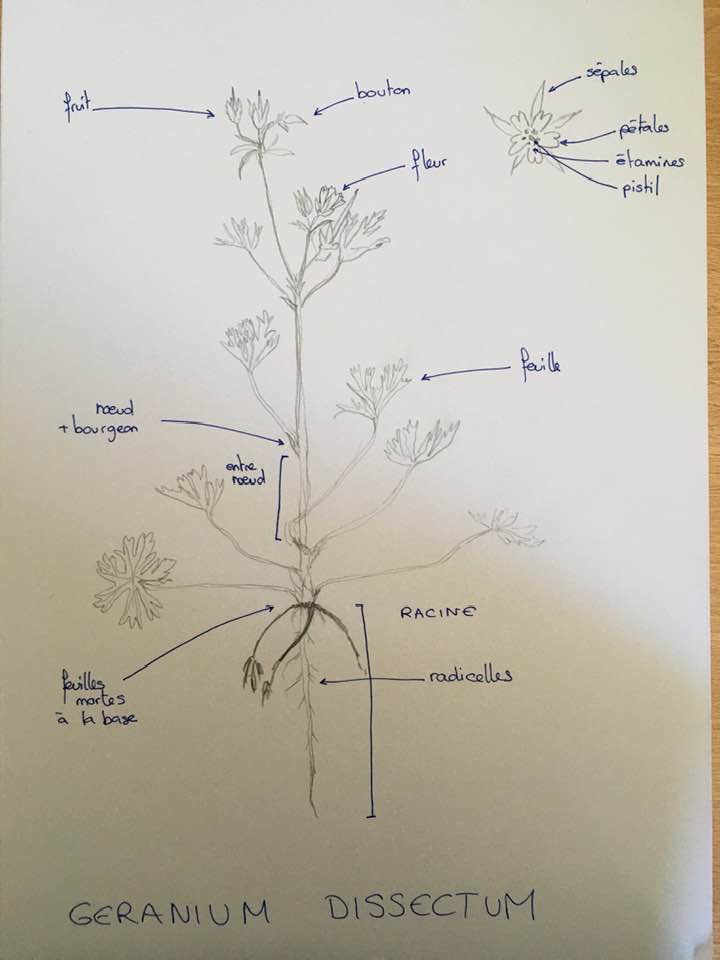 sépales
fruit
bouton
pétales
fleur
étamines
pistil
feuille
nœud
+ bourgeon
entre
nœud
RACINE
feuilles
mortes
à la base
radicelles
GERANIUM DISSECTUM